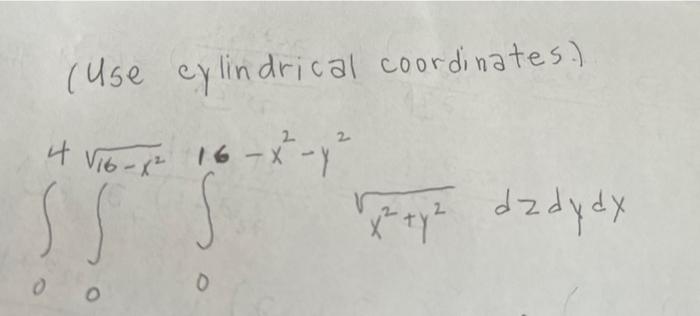 (Use cylindrical coordinates.)
4 √16-x² 16-x²-y²
∫ ∫ ∫ √x²+y² dzdydx
0 0 0